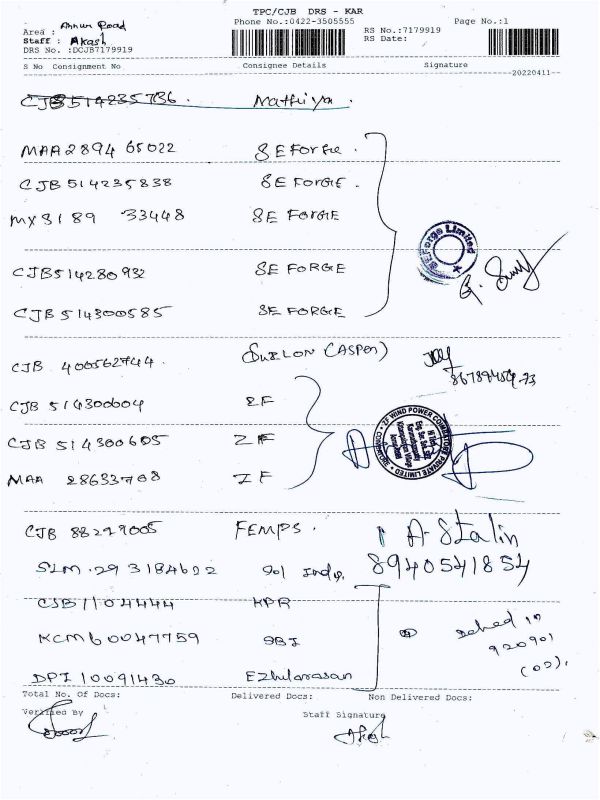 TPC/CJB DRS - KAR
Area : Annur Road
Phone No.:0422-3505555
RS No.:7179919
Page No.:1
Staff : Akash
RS Date:
DRS No. :DCJB7179919
S No Consignment No Consignee Details Signature
20220411
CJB514235736. Mathiya.
MAA2894 65022 SEForge.
CJB 514235838 SE FORGE.
MX3189 33448 SE FORGE
SE Forge Limited
CJB514280932 SE FORGE
CJB 514300585 SE FORGE
CJB 400562744. SUZLON (ASPEN)
CJB 514300604 ZF
CJB 514300605 ZF
MAA 28633708 ZF
ZF WIND POWER COIMBATORE PRIVATE LIMITED
CJB 88279005 FEMPS. A. Stalin
SLM 293184622 Sol Indp. 8940541854
CJB 1104444 KPR
KCM60047759 SBI
DPI 10091430 Ezhilarasan
Total No. Of Docs: Delivered Docs: Non Delivered Docs:
Verified By Staff Signature
Akash